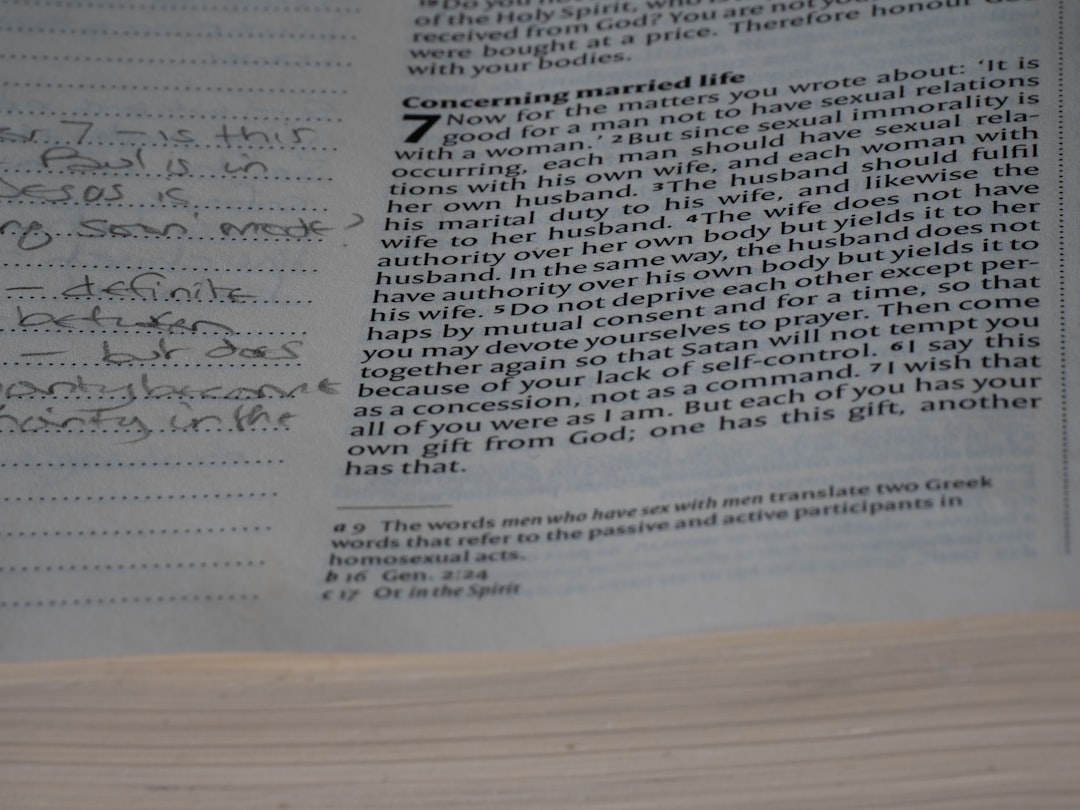 19 Do you no
of the Holy Spirit, who
received from God? You are not you
were bought at a price. Therefore honour God
with your bodies.
Concerning married life
7 Now for the matters you wrote about: ‘It is
good for a man not to have sexual relations
with a woman.’ 2 But since sexual immorality is
occurring, each man should have sexual rela-
tions with his own wife, and each woman with
her own husband. 3 The husband should fulfil
his marital duty to his wife, and likewise the
wife to her husband. 4 The wife does not have
authority over her own body but yields it to her
husband. In the same way, the husband does not
have authority over his own body but yields it to
his wife. 5 Do not deprive each other except per-
haps by mutual consent and for a time, so that
you may devote yourselves to prayer. Then come
together again so that Satan will not tempt you
because of your lack of self-control. 6 I say this
as a concession, not as a command. 7 I wish that
all of you were as I am. But each of you has your
own gift from God; one has this gift, another
has that.
a 9 The words men who have sex with men translate two Greek
words that refer to the passive and active participants in
homosexual acts.
b 16 Gen. 2:24
c 17 Or in the Spirit
7 – is this
Paul is in
Jesus is
– definite
between
– but does
in the